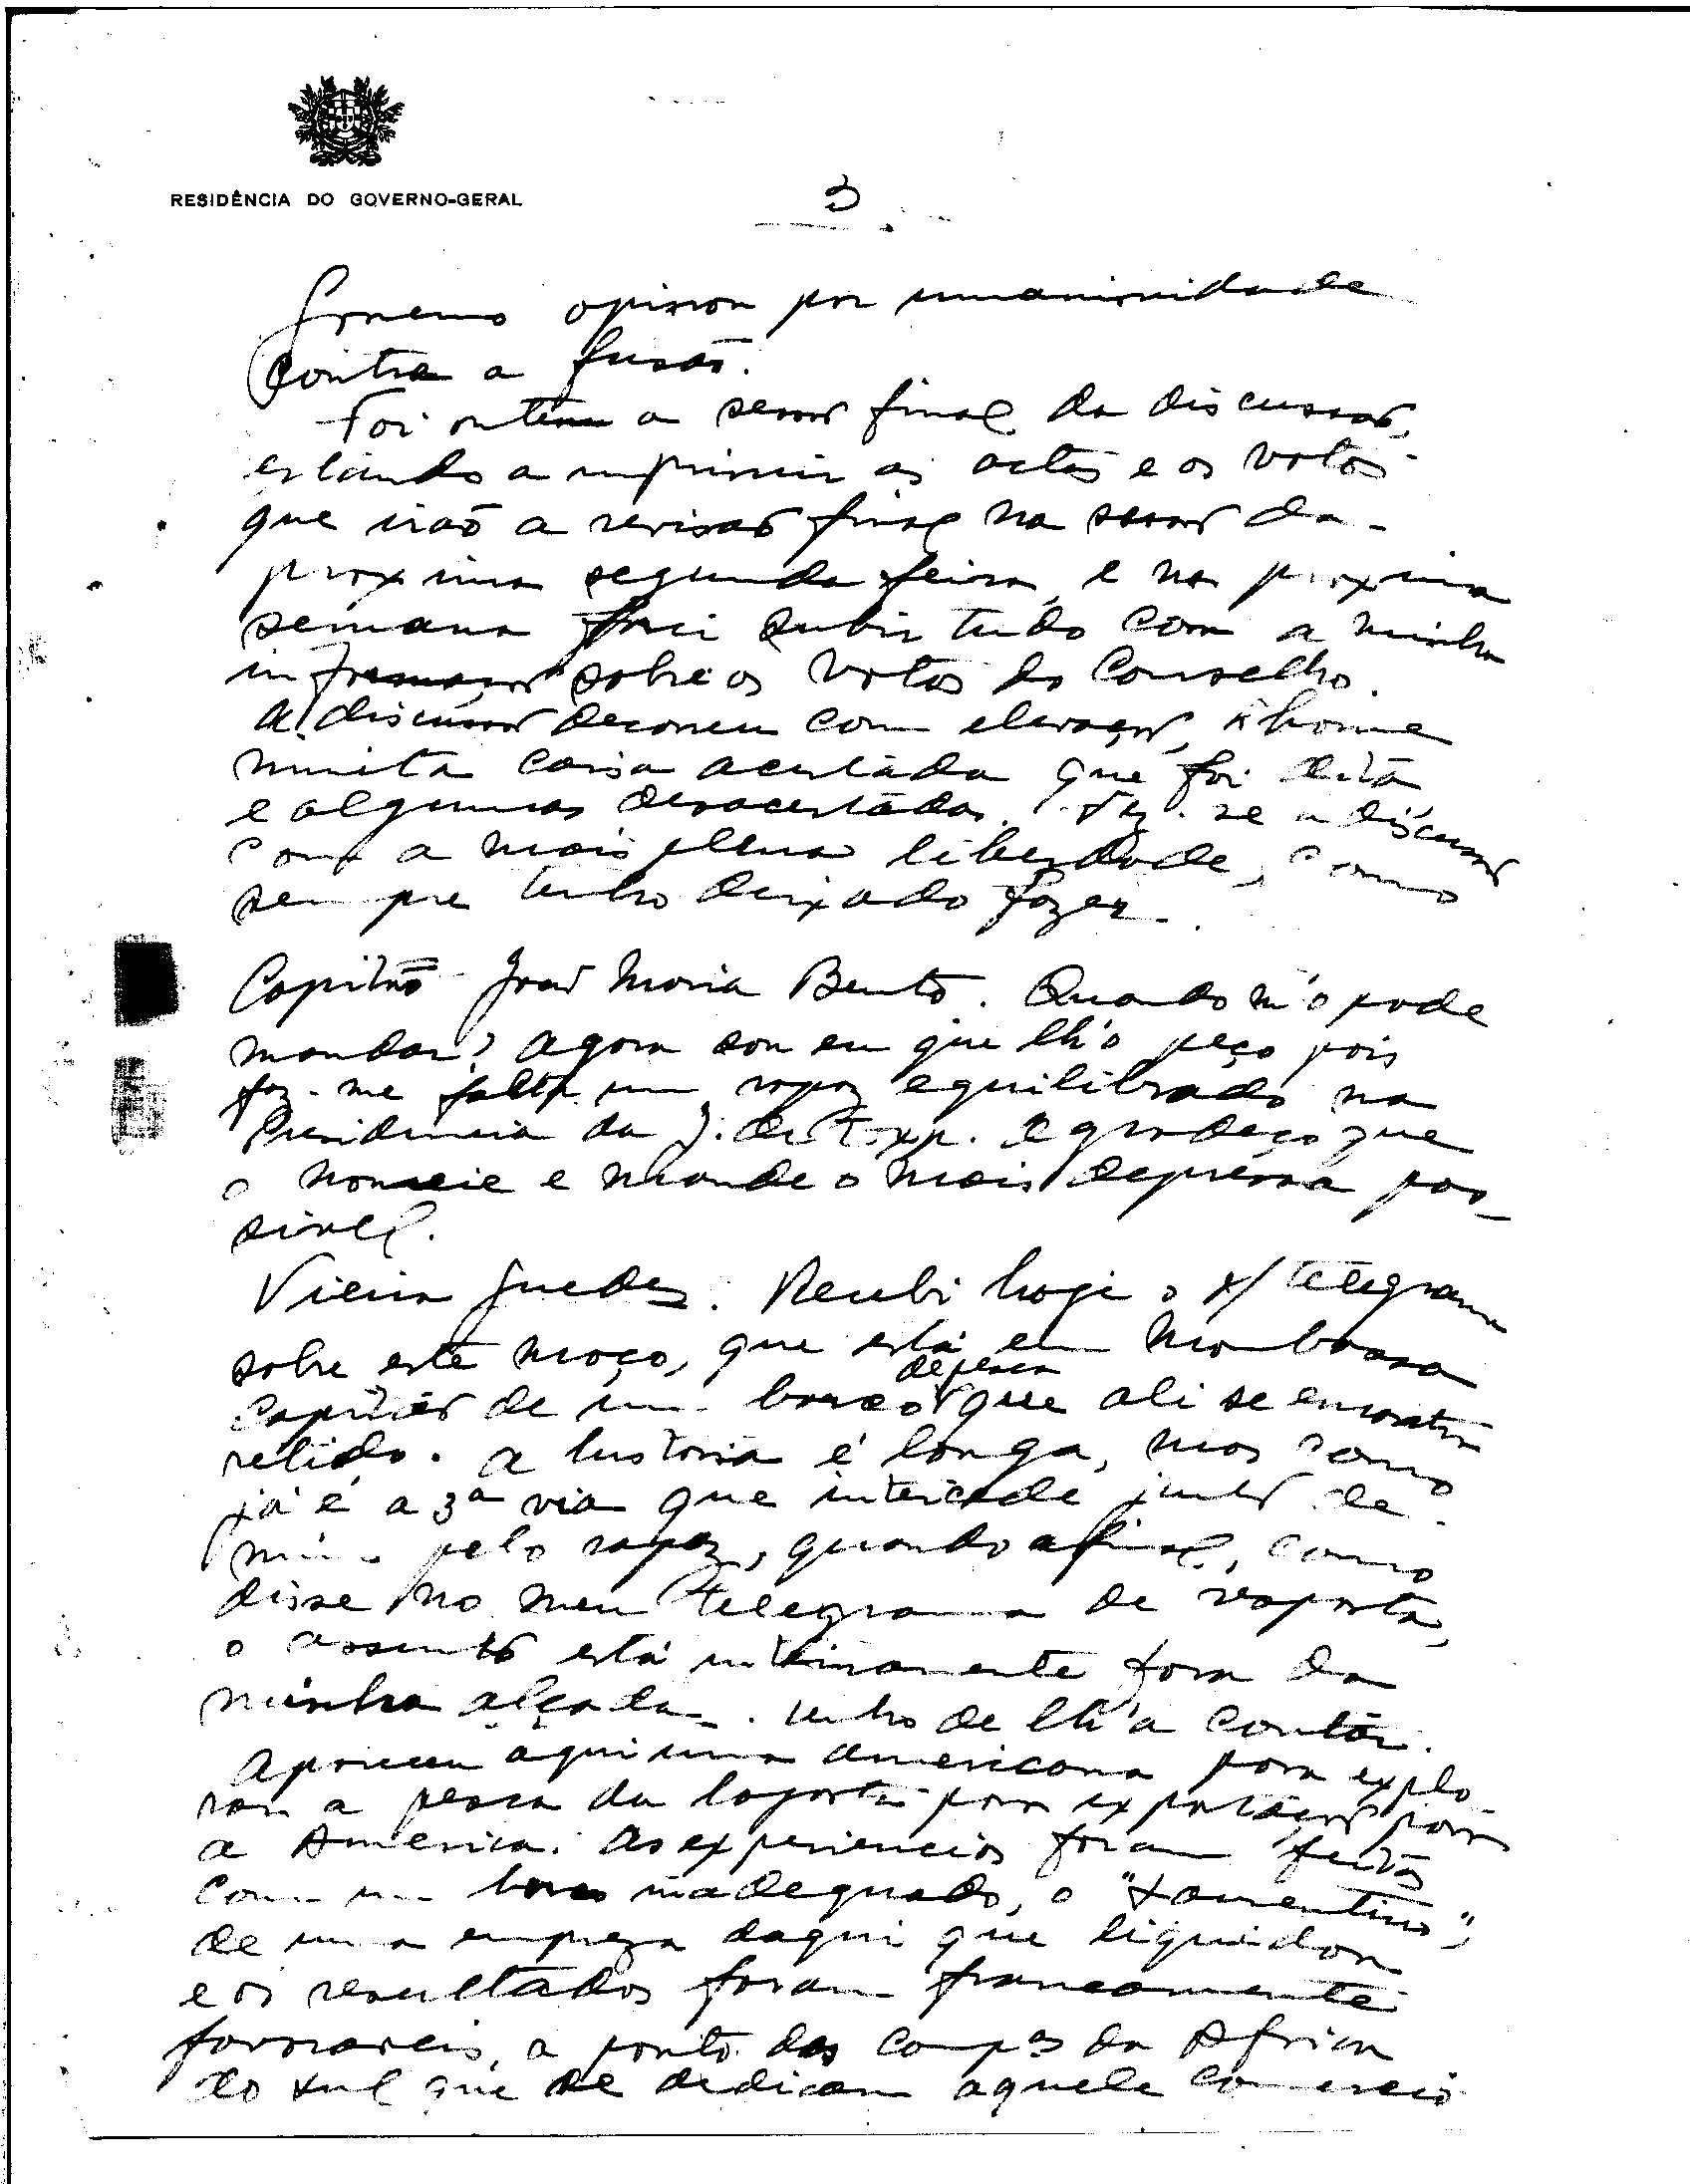 RESIDÊNCIA DO GOVERNO-GERAL
3
Governo opinou por unanimidade
contra a fusão.
Foi ontem a sessão final da discussão,
estando a imprimir as actas e os votos
que irão a revisão final na sessão da
proxima segunda feira, e na proxima
semana farei subir tudo com a minha
informação sobre os votos do Conselho.
A discussão decorreu com elevação, e houve
muita coisa acertada que foi dita
e algumas desacertadas. Fez-se a discussão
com a mais plena liberdade, como
sempre tenho deixado fazer.
Capitão João Maria Bento. Quando m'o pode
mandar? Agora sou eu que lh'o peço pois
faz-me falta um rapaz equilibrado na
Presidencia da J. de Exp. Agradeço que
o nomeie e mande o mais depressa pos-
sivel.
Vieira Guedes. Recebi hoje o s/ telegrama
sobre este moço, que está em Mombassa
de pesca
capitão de um barco que ali se encontra
retido. A historia é longa, mas como
já é a 3ª via que intercede junto de
mim pelo rapaz, quando afinal, como
disse no meu telegrama de resposta,
o assunto está inteiramente fora da
minha alçada. Tenho de lh'a contar.
Apareceu aqui uma americana para explo-
rar a pesca da lagosta para exportação para
a America. As experiencias foram feitas
com um barco inadequado, o "Tomentino",
de uma empreza daqui que liquidou
e os resultados foram francamente
favoraveis, a ponto das compas da Africa
do Sul que se dedicam aquele comercio